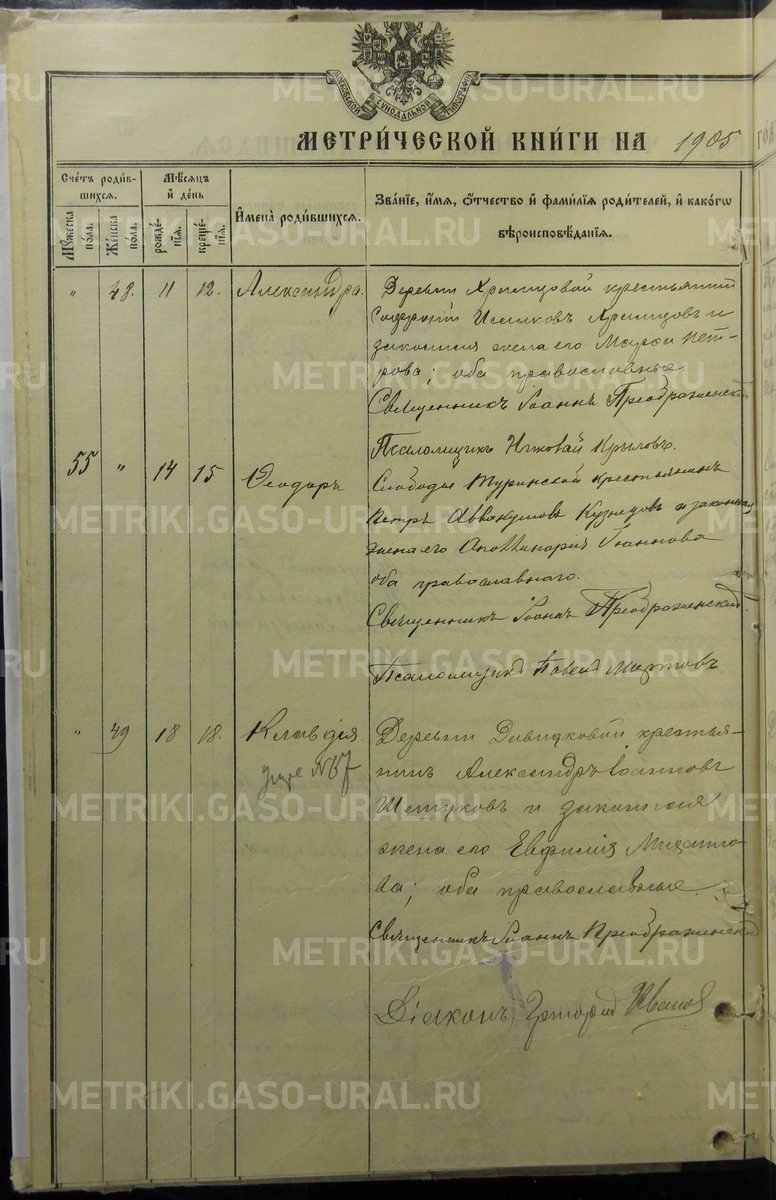 МОСКОВСКОЙ СУНОДАЛЬНОЙ ТИПОГРАФІИ
МЕТРИ́ЧЕСКОЙ КНИ́ГИ НА 1905
Сче́тъ роди́в-
шихся.
Мѣ́сяцъ
и҆ де́нь
Му́жеска
по́ла.
Же́нска
по́ла.
рожде́-
нїя.
креще́-
нїя.
И҆мена̀ роди́вшихся.
Зва́нїе, и҆́мя, ѻ҆́тчество и҆ фами́лїя роди́телей, и҆ како́гѡ
вѣроисповѣ́данїя.
" 48. 11 12. Александра.
Деревни крестьянинъ
и
законная жена его Пет-
рова; оба православные.
Священникъ Іоаннъ Преображенскій
Псаломщикъ Николай Крыловъ.
55 " 14 15 Ѳеодоръ
Слободы Туринской крестьянинъ
Петръ Аввакумовъ Кузнецовъ и законная
жена его Іоаннова
оба православнаго.
Священникъ Іоаннъ Преображенскій.
Псаломщикъ Павелъ
" 49 18 18. Клавдія
Деревни Давыдковой крестья-
нинъ Александръ Іоанновъ
Шетуковъ и законная
жена его Евфимія Михаило-
ва; оба православные.
Священникъ Іоаннъ Преображенскій
Діаконъ Григорій Ивановъ
METRIKI.GASO-URAL.RU